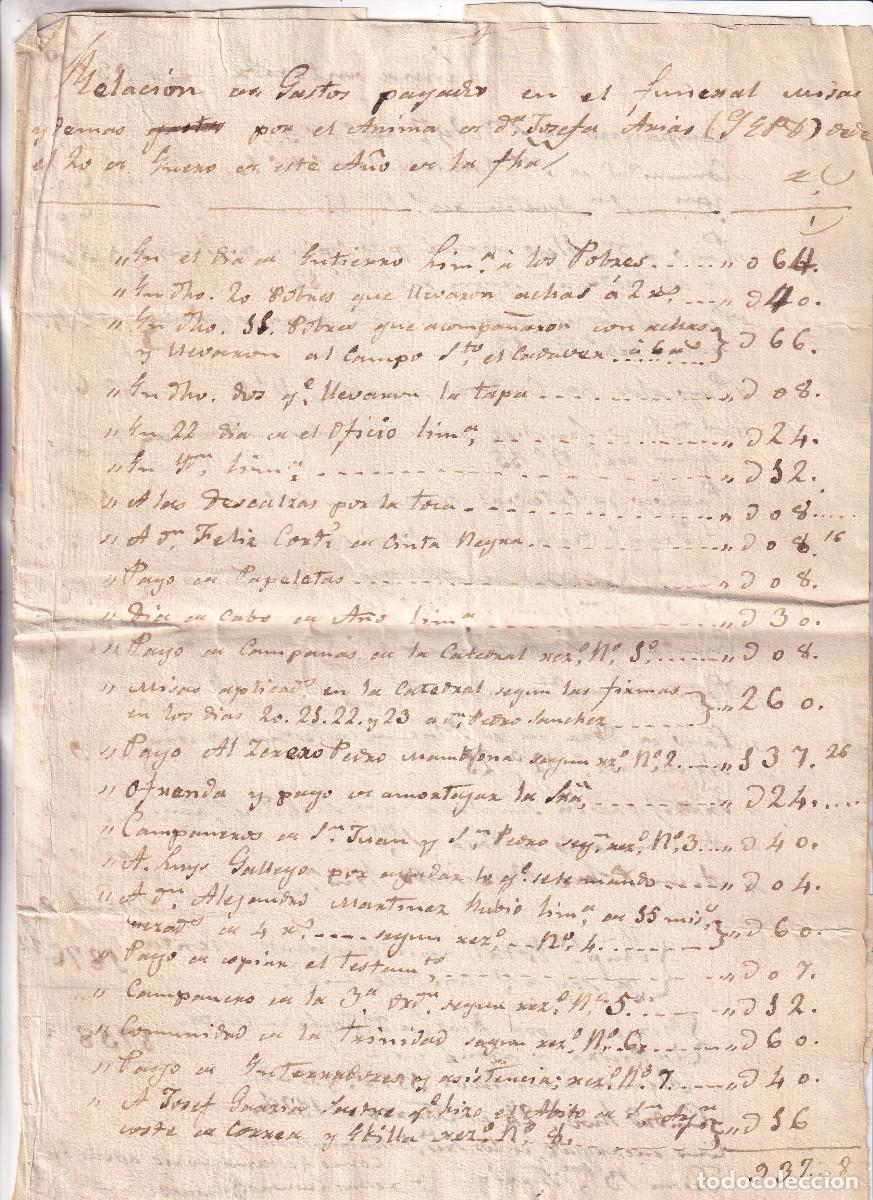 Relación de Gastos pagados en el funeral misas
y demas gastos por el Anima de dª. Josefa Arias (QEPD) desde
el 20 de Enero de este Año de la fha
"En el dia de Entierro Limª. à los Pobres..... " 064.
"En dho. 20 Pobres que llevaron achas à 2 rs. ... " 040.
"En dho. 11. Pobres que acompañaron con achas
y llevaron al Campo Sto. el Cadaver à 6 rs } " 066.
"En dho. dos qe. llevaron la tapa ......... " 008.
"En 22 dia de el Oficio limª. ......... " 024.
"En Ydm. limª. ......... " 012.
"A las Descalzas por la toca ......... " 008.....
"A dn. Feliz Cortˢ de Cinta Negra ......... " 008. 16
"Pago de Papeletas ......... " 008.
"Dia de Cabo de Año limª ......... " 030.
"Pago de Campanas de la Catedral rezº. Nº. 1º. ..... " 008.
"Misas aplicads. en la Catedral segun las firmas
en los dias 20. 21. 22. y 23 a dn. Pedro Sanchez } " 260.
"Pago Al Zerero Pedro segun rzº. Nº. 2. .... " 137. 26
"Ofrenda y pago de amortajar la Sra. ......... " 024.....
"Campaneros de Sn. Juan y Sn. Pedro segn. rezº. Nº. 3... " 040.
"A. Luys Gallego por ayudar lo qe. se le mando ..... " 004.
"A dn. Alejandro Martinez Rubio limª. de 15 miss.
rezads. de 4 rs. .... segun rezº. .. Nº. 4. } " 060.
"Pago de copiar el testamto. ......... " 007.
"Campanero de la 3ª. ordn. segun rezº. Nº. 5. .... " 012.
"Comunidad de la trinidad segun rezº. Nº. 6. .... " 060.
"Pago de Enterradores y asistencia; rezº. Nº 7. ..... " 040.
"A Josef Sastre qe. hizo el Abito de Sn.
coste de Correa y Evilla rezº. Nº. 8. } " 016
937... 8
todocoleccion.net